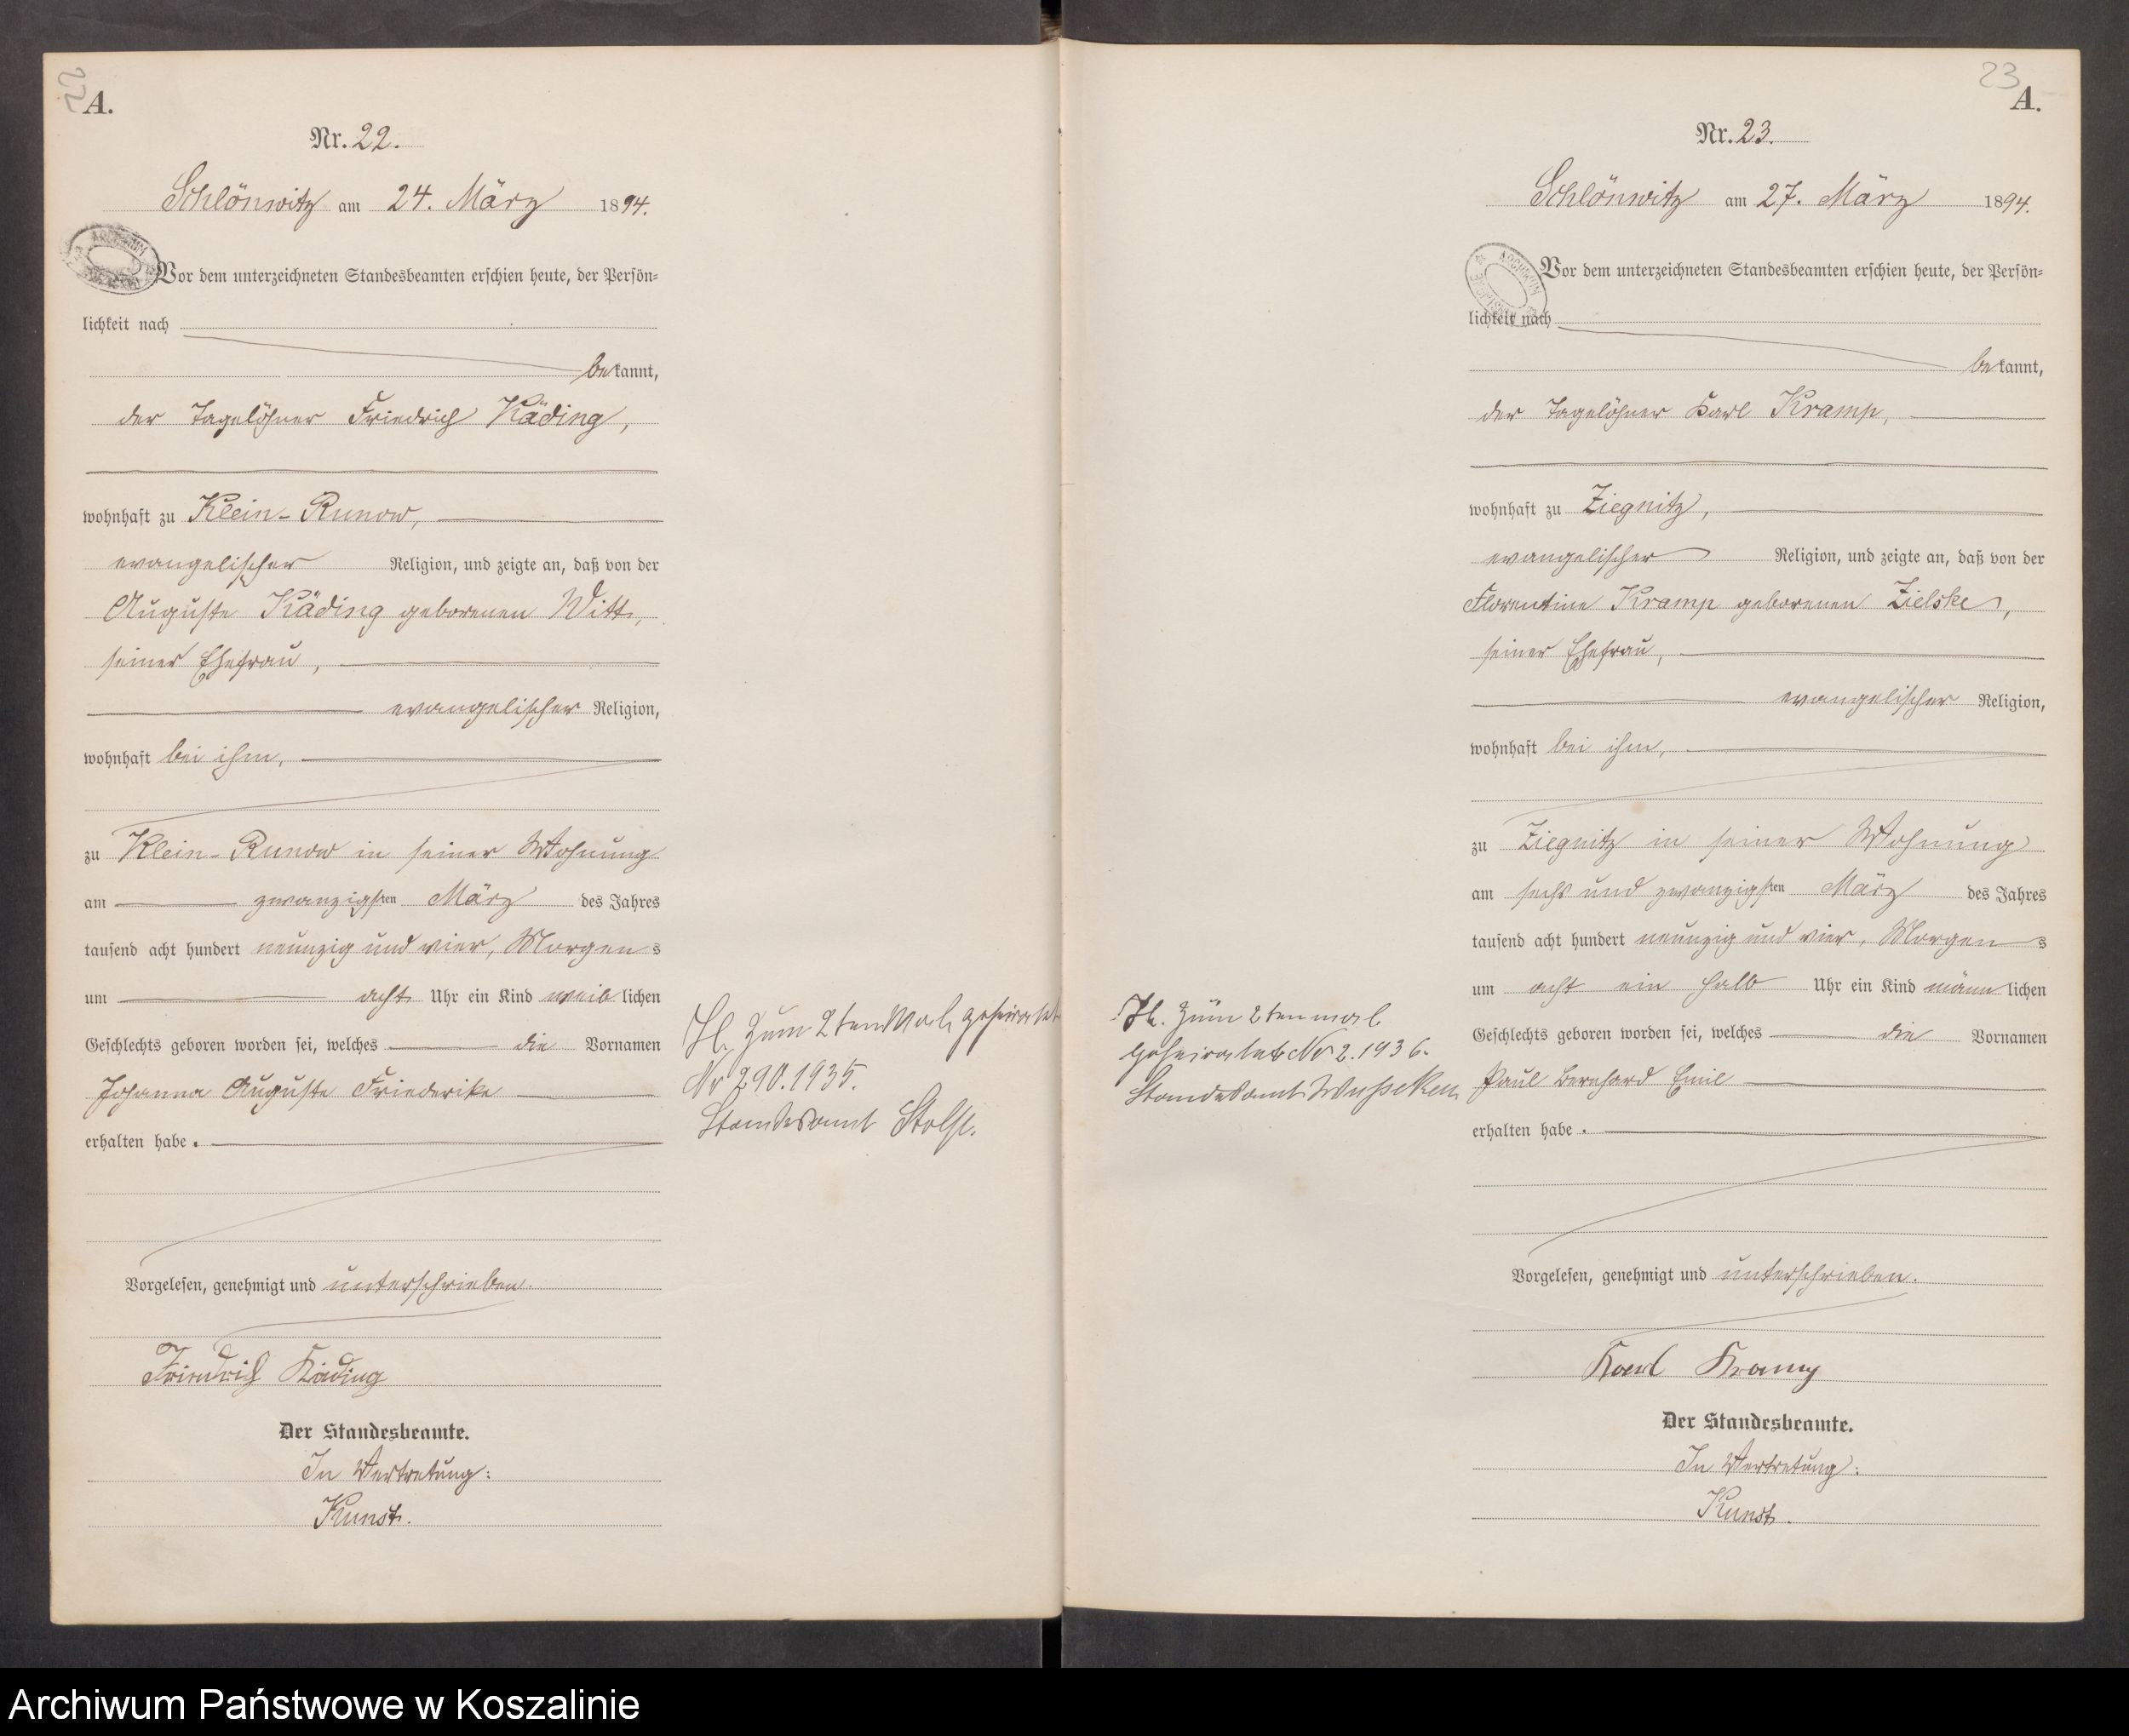 22
A.
Nr. 22.
Schlönwitz am 24. März 1894.
Vor dem unterzeichneten Standesbeamten erschien heute, der Persön=
lichkeit nach
bekannt,
der Tagelöhner Friedrich Käding,
wohnhaft zu Klein-Runow,
evangelischer Religion, und zeigte an, daß von der
Auguste Käding geborenen Witt,
seiner Ehefrau,
evangelischer Religion,
wohnhaft bei ihm,
zu Klein-Runow in seiner Wohnung
am zwanzigsten März des Jahres
tausend acht hundert neunzig und vier, Morgens
um acht Uhr ein Kind weiblichen
Geschlechts geboren worden sei, welches die Vornamen
Johanna Auguste Friederike
erhalten habe.
Vorgelesen, genehmigt und unterschrieben.
Friedrich Käding
Der Standesbeamte.
In Vertretung:
Kunst.
zum 2ten Mal geheiratet
Nr 290.1935.
Standesamt Stolp.
23
A.
Nr. 23.
Schlönwitz am 27. März 1894.
Vor dem unterzeichneten Standesbeamten erschien heute, der Persön=
lichkeit nach
bekannt,
der Tagelöhner Karl Kramp,
wohnhaft zu Ziegnitz,
evangelischer Religion, und zeigte an, daß von der
Florentine Kramp geborenen Zielske,
seiner Ehefrau,
evangelischer Religion,
wohnhaft bei ihm,
zu Ziegnitz in seiner Wohnung
am sechs und zwanzigsten März des Jahres
tausend acht hundert neunzig und vier, Morgens
um acht ein halb Uhr ein Kind männlichen
Geschlechts geboren worden sei, welches die Vornamen
Paul Bernhard Emil
erhalten habe.
Vorgelesen, genehmigt und unterschrieben.
Karl Kramp
Der Standesbeamte.
In Vertretung:
Kunst.
zum 2ten mal
geheiratet Nr 2.1936.
Standesamt Wusseken
Archiwum Państwowe w Koszalinie